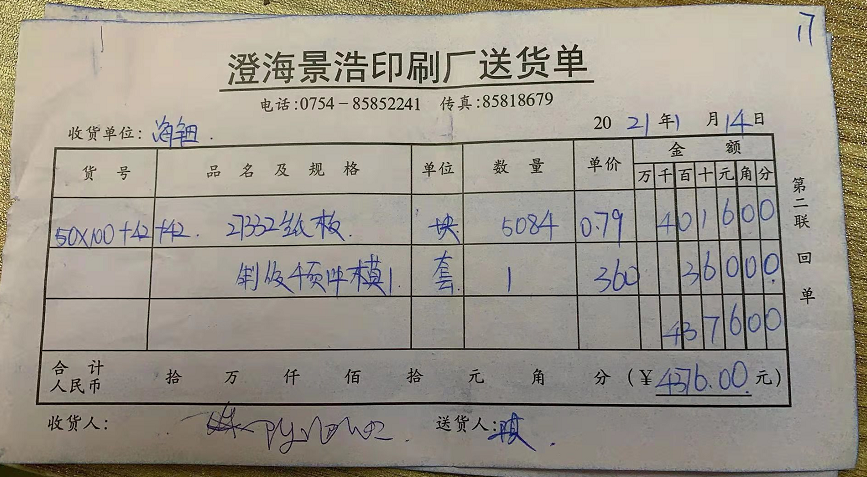 17
澄海景浩印刷厂送货单
电话:0754-85852241 传真:85818679
收货单位: 海钿. 2021年1月14日
货号 品名及规格 单位 数量 单价 金额
万千百十元角分
50X100+42+42. 27332纸板. 块 5084 0.79 401600
制版 模1 套. 1 360 36000.
437600
合计人民币 拾 万 仟 佰 拾 元 角 分 (¥4376.00元)
收货人: 送货人:
第二联 回单